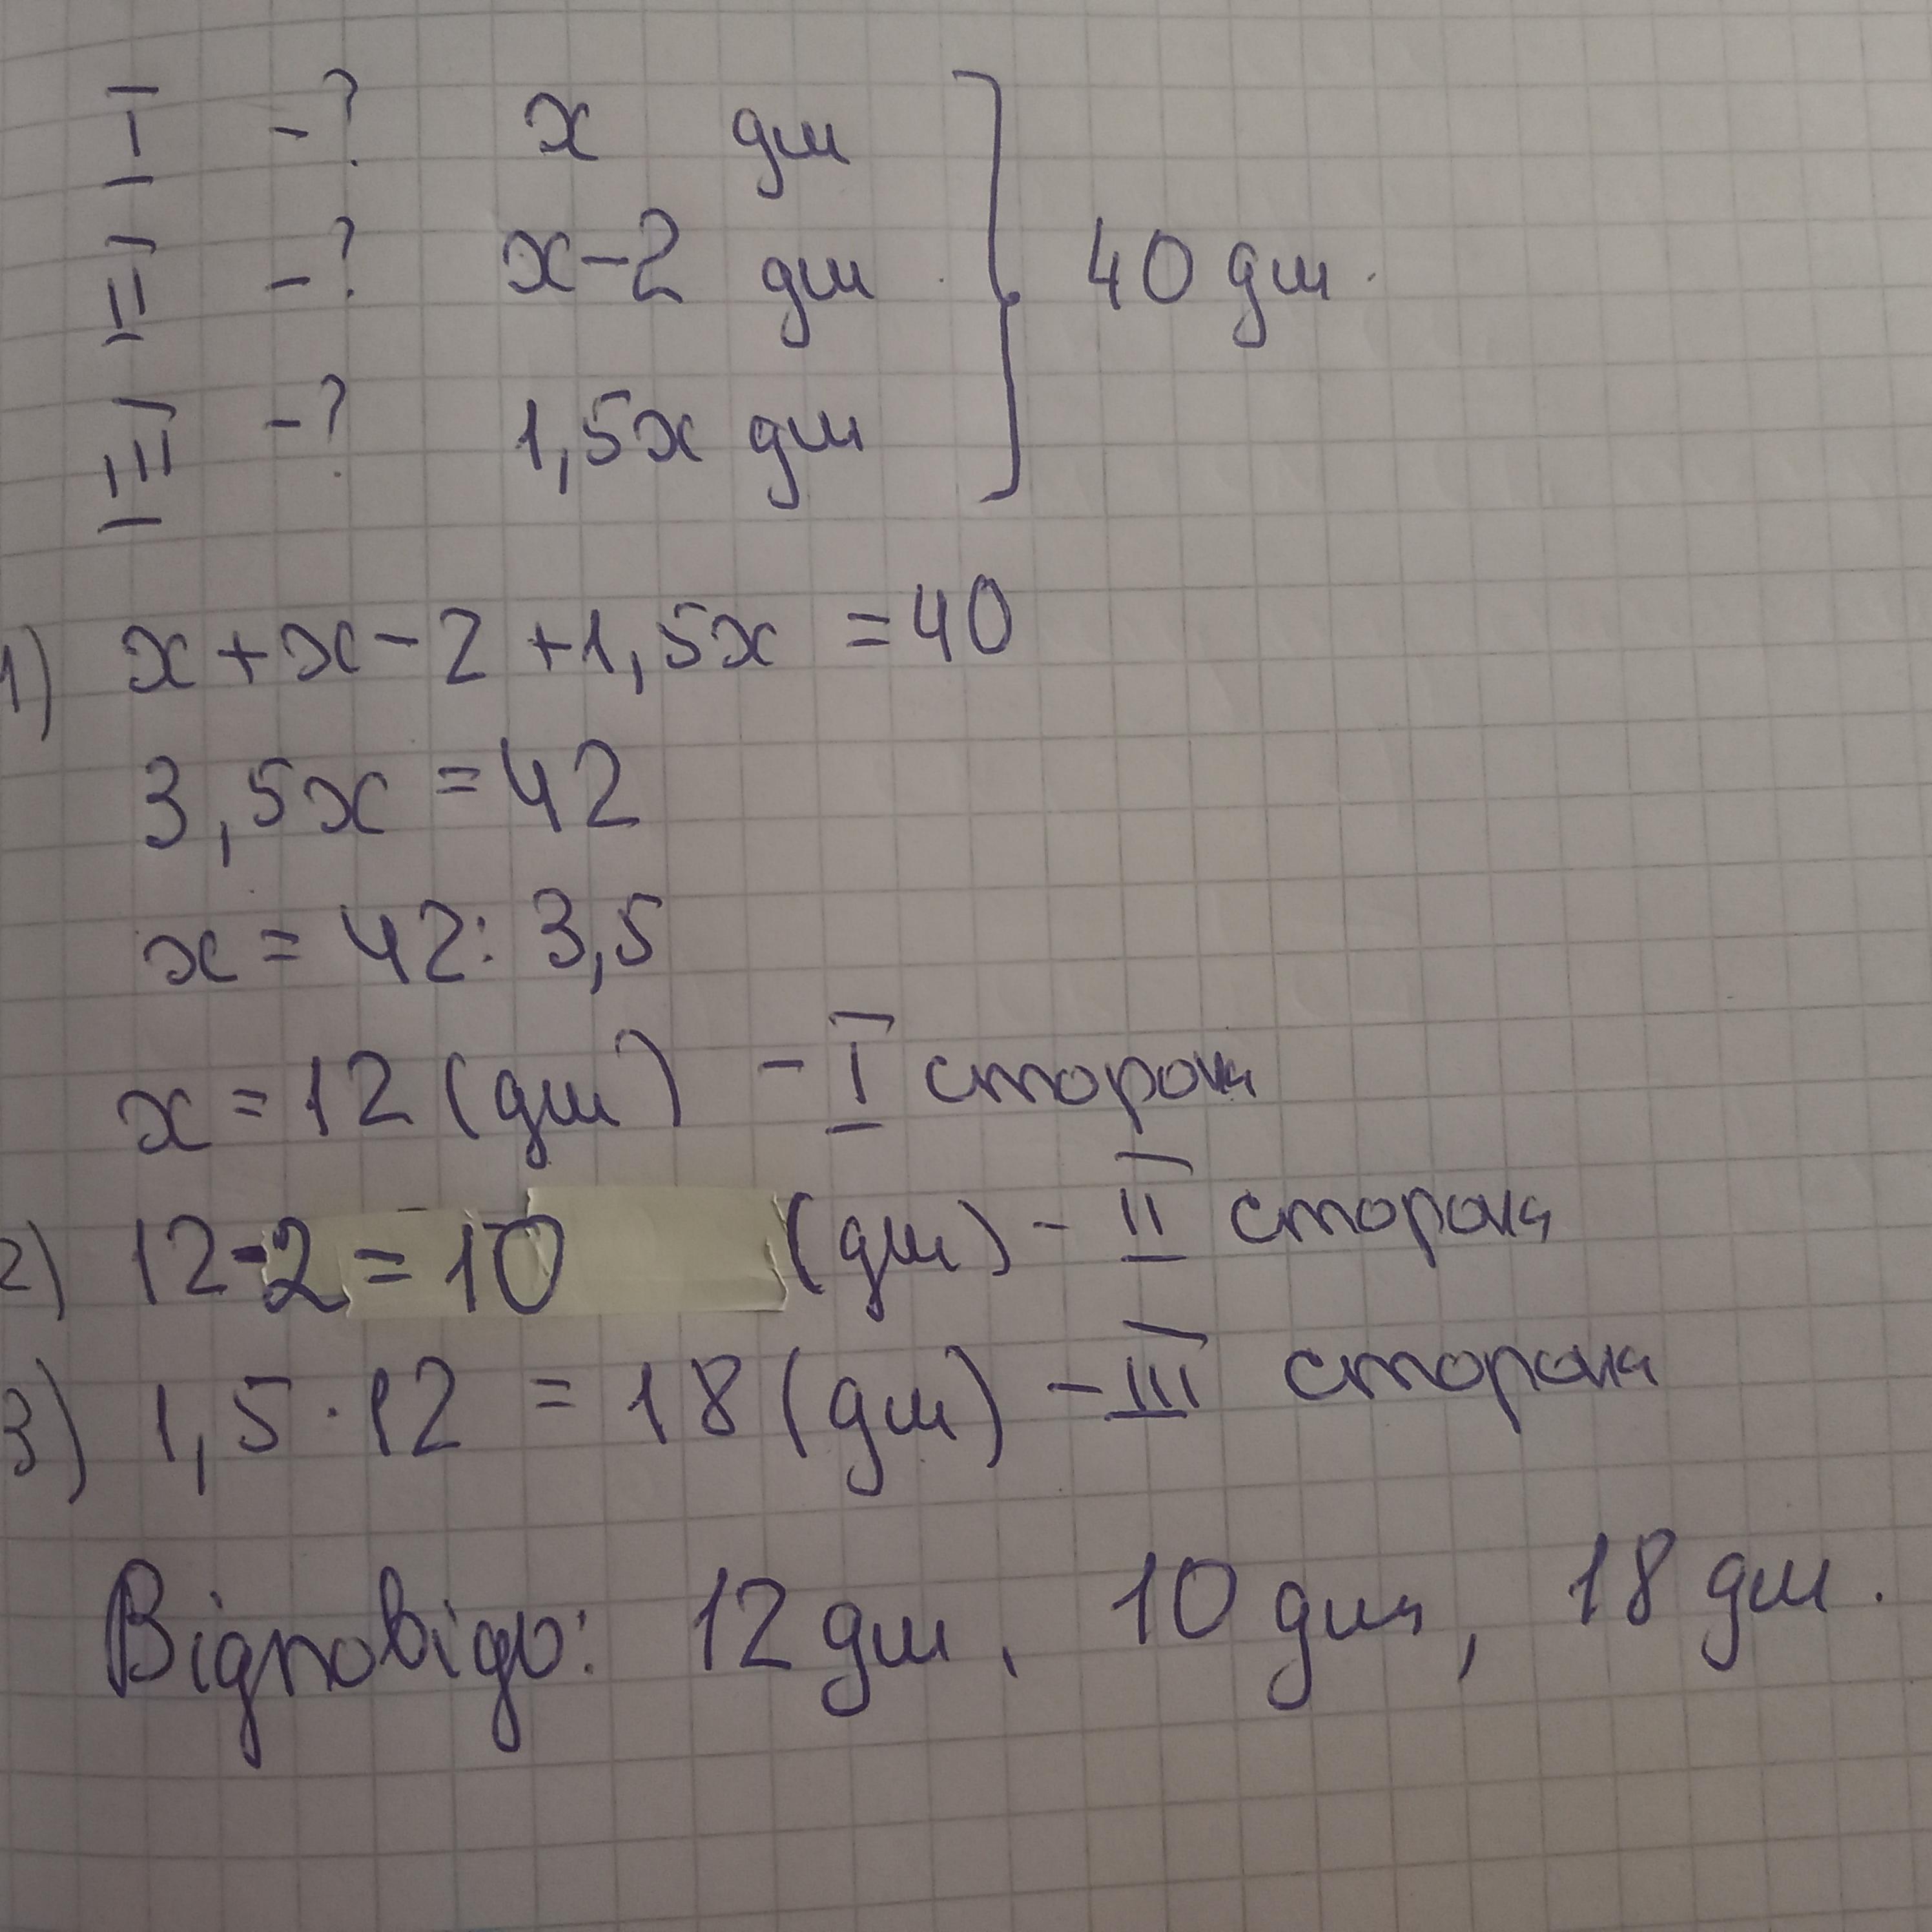 I -? x дм
II -? x-2 дм 40 дм.
III -? 1,5x дм
1) x+x-2+1,5x=40
3,5x=42
x=42:3,5
x=12(дм) - I сторона
2) 12-2=10 (дм) - II сторона
3) 1,5·12=18(дм) - III сторона
Відповідь: 12 дм, 10 дм, 18 дм.